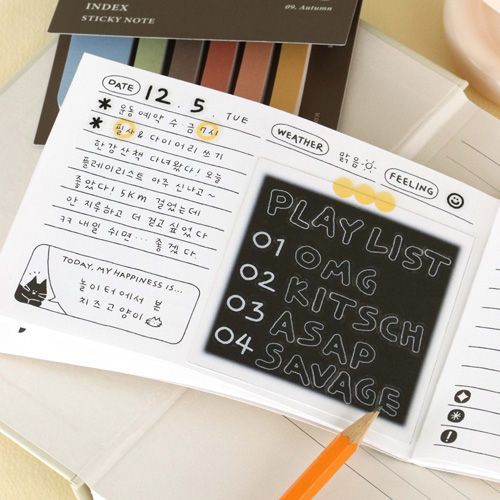 INDEX
STICKY NOTE
09. Autumn
DATE 12. 5. TUE
* 운동 예약 수 금 7시
* 필사 & 다이어리 쓰기
한강산책 다녀왔다! 오늘
플레이리스트 아주 신나고~
좋았다! 5KM 걸었는데
안 지읗하고 더 걷고 싶었다
ㅋㅋ 내일 쉬면... 좋겠다
TODAY, MY HAPPINESS IS...
놀이터에서 본
치즈고양이
WEATHER 맑음
FEELING
PLAY LIST
01 OMG
02 KITSCH
03 ASAP
04 SAVAGE